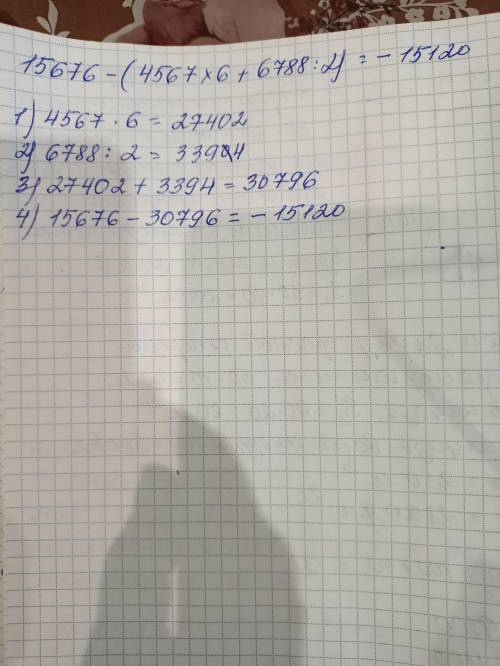 15676 - (4567 × 6 + 6788 : 2) = - 15120
1) 4567 · 6 = 27402
2) 6788 : 2 = 3394
3) 27402 + 3394 = 30796
4) 15676 - 30796 = - 15120